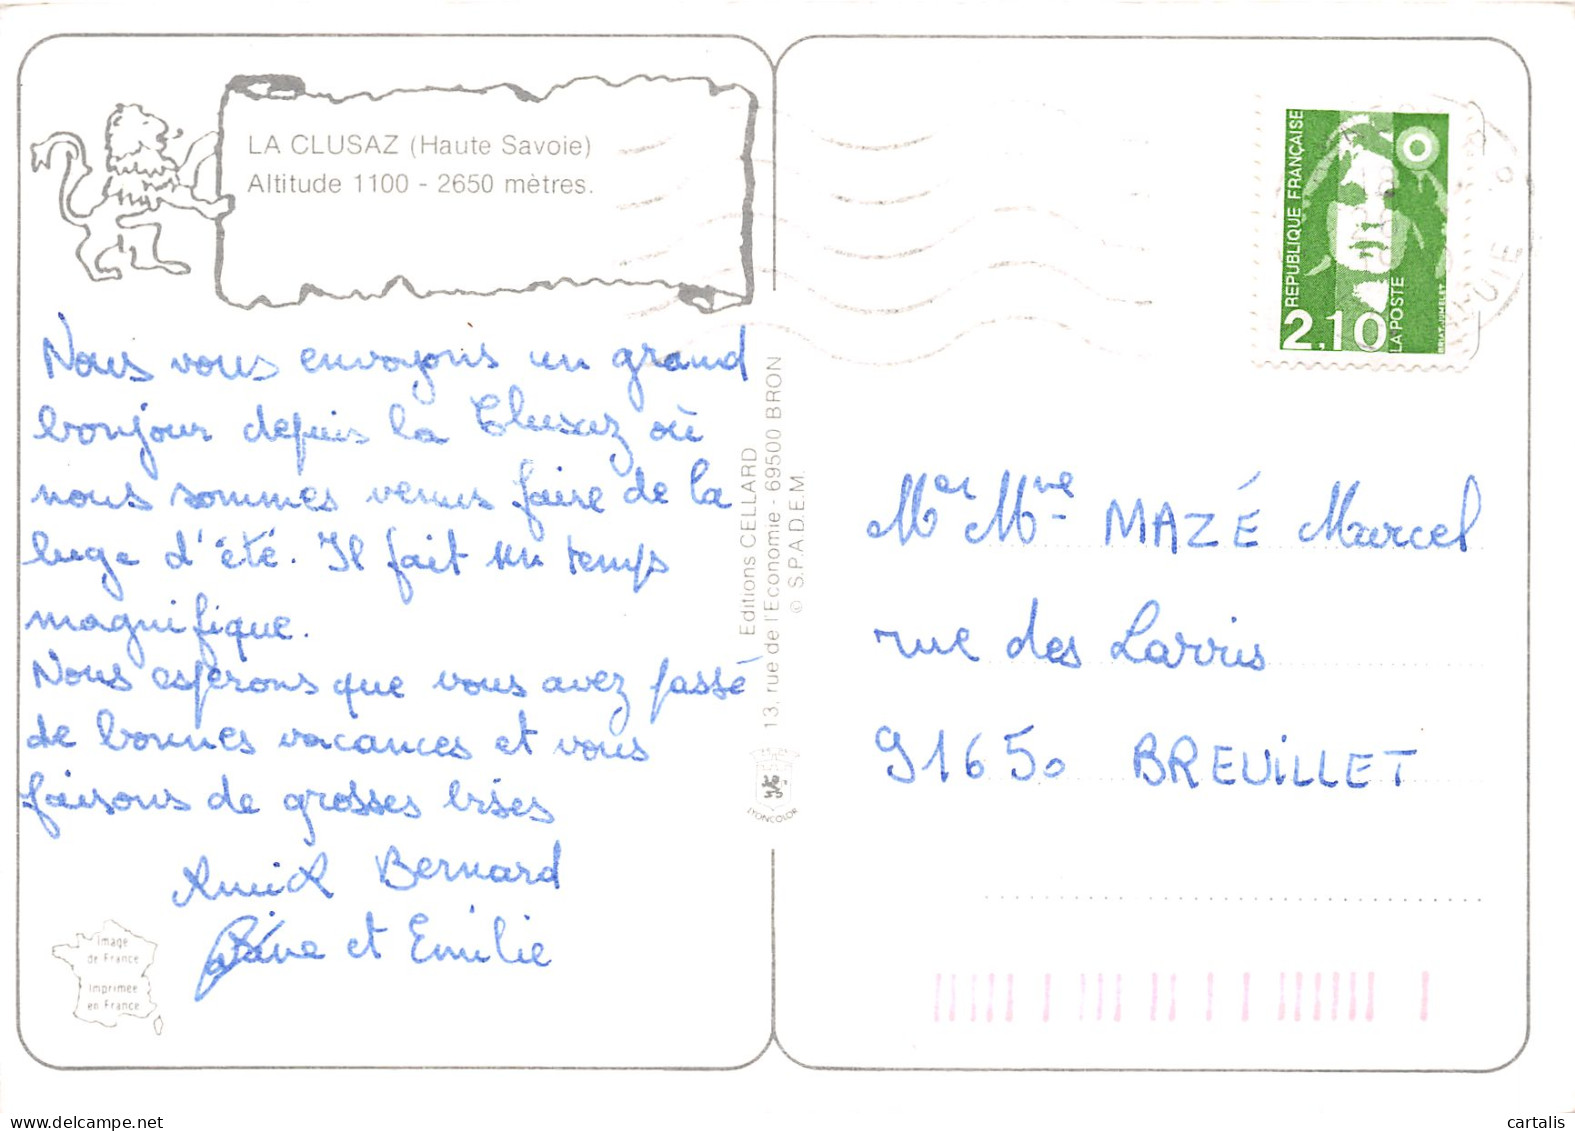 LA CLUSAZ (Haute Savoie)
Altitude 1100 - 2650 mètres.
Nous vous envoyons un grand
bonjour depuis la Clusaz où
nous sommes venus faire de la
luge d'été. Il fait un temps
magnifique.
Nous esperons que vous avez passé
de bonnes vacances et vous
faisons de grosses bises
Bernard
et Emilie
Image
de France
Imprimée
en France
Editions CELLARD
13, rue de l'Economie - 69500 BRON
© S.P.A.D.E.M.
LYONCOLOR
REPUBLIQUE FRANÇAISE
2,10
LA POSTE
BRIAT-JUMELET
Mr Mme MAZÉ Marcel
rue des Larris
91650 BREUILLET
cartalis
www.delcampe.net